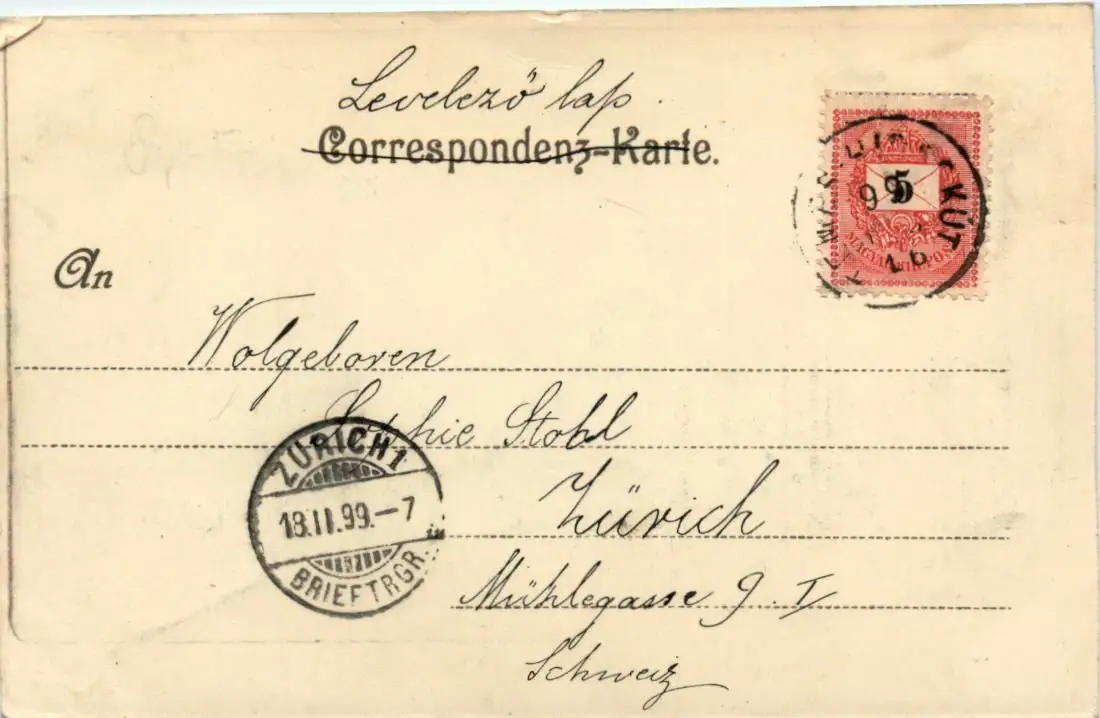 Levelező lap.
Correspondenz-Karte.
5
MAGYAR KIR. POSTA
99
16
KÚT
An
Wolgeboren
Sophie Stohl
Zürich
Mühlegasse 9. I
Schweiz
ZÜRICH 1
18.II.99.-7
BRIEFTRGR.